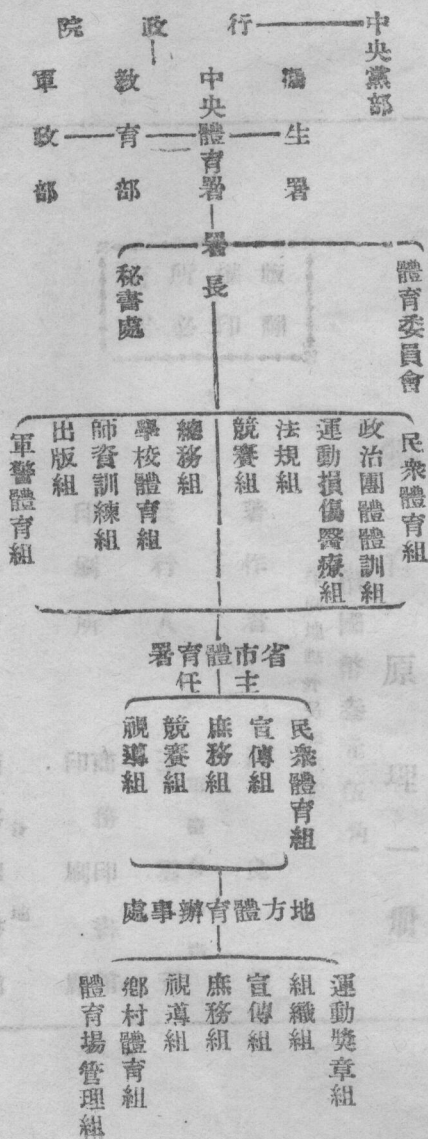 中央黨部
行政院
衞生署
中央體育署
教育部
軍政部
署長
體育委員會
秘書處
民衆體育組
政治團體體訓組
運動損傷醫療組
法規組
競賽組
總務組
學校體育組
師資訓練組
出版組
軍警體育組
省市體育署
主任
民衆體育組
宣傳組
庶務組
競賽組
視導組
地方體育辦事處
運動獎章組
組織組
宣傳組
庶務組
視導組
鄉村體育組
體育場管理組